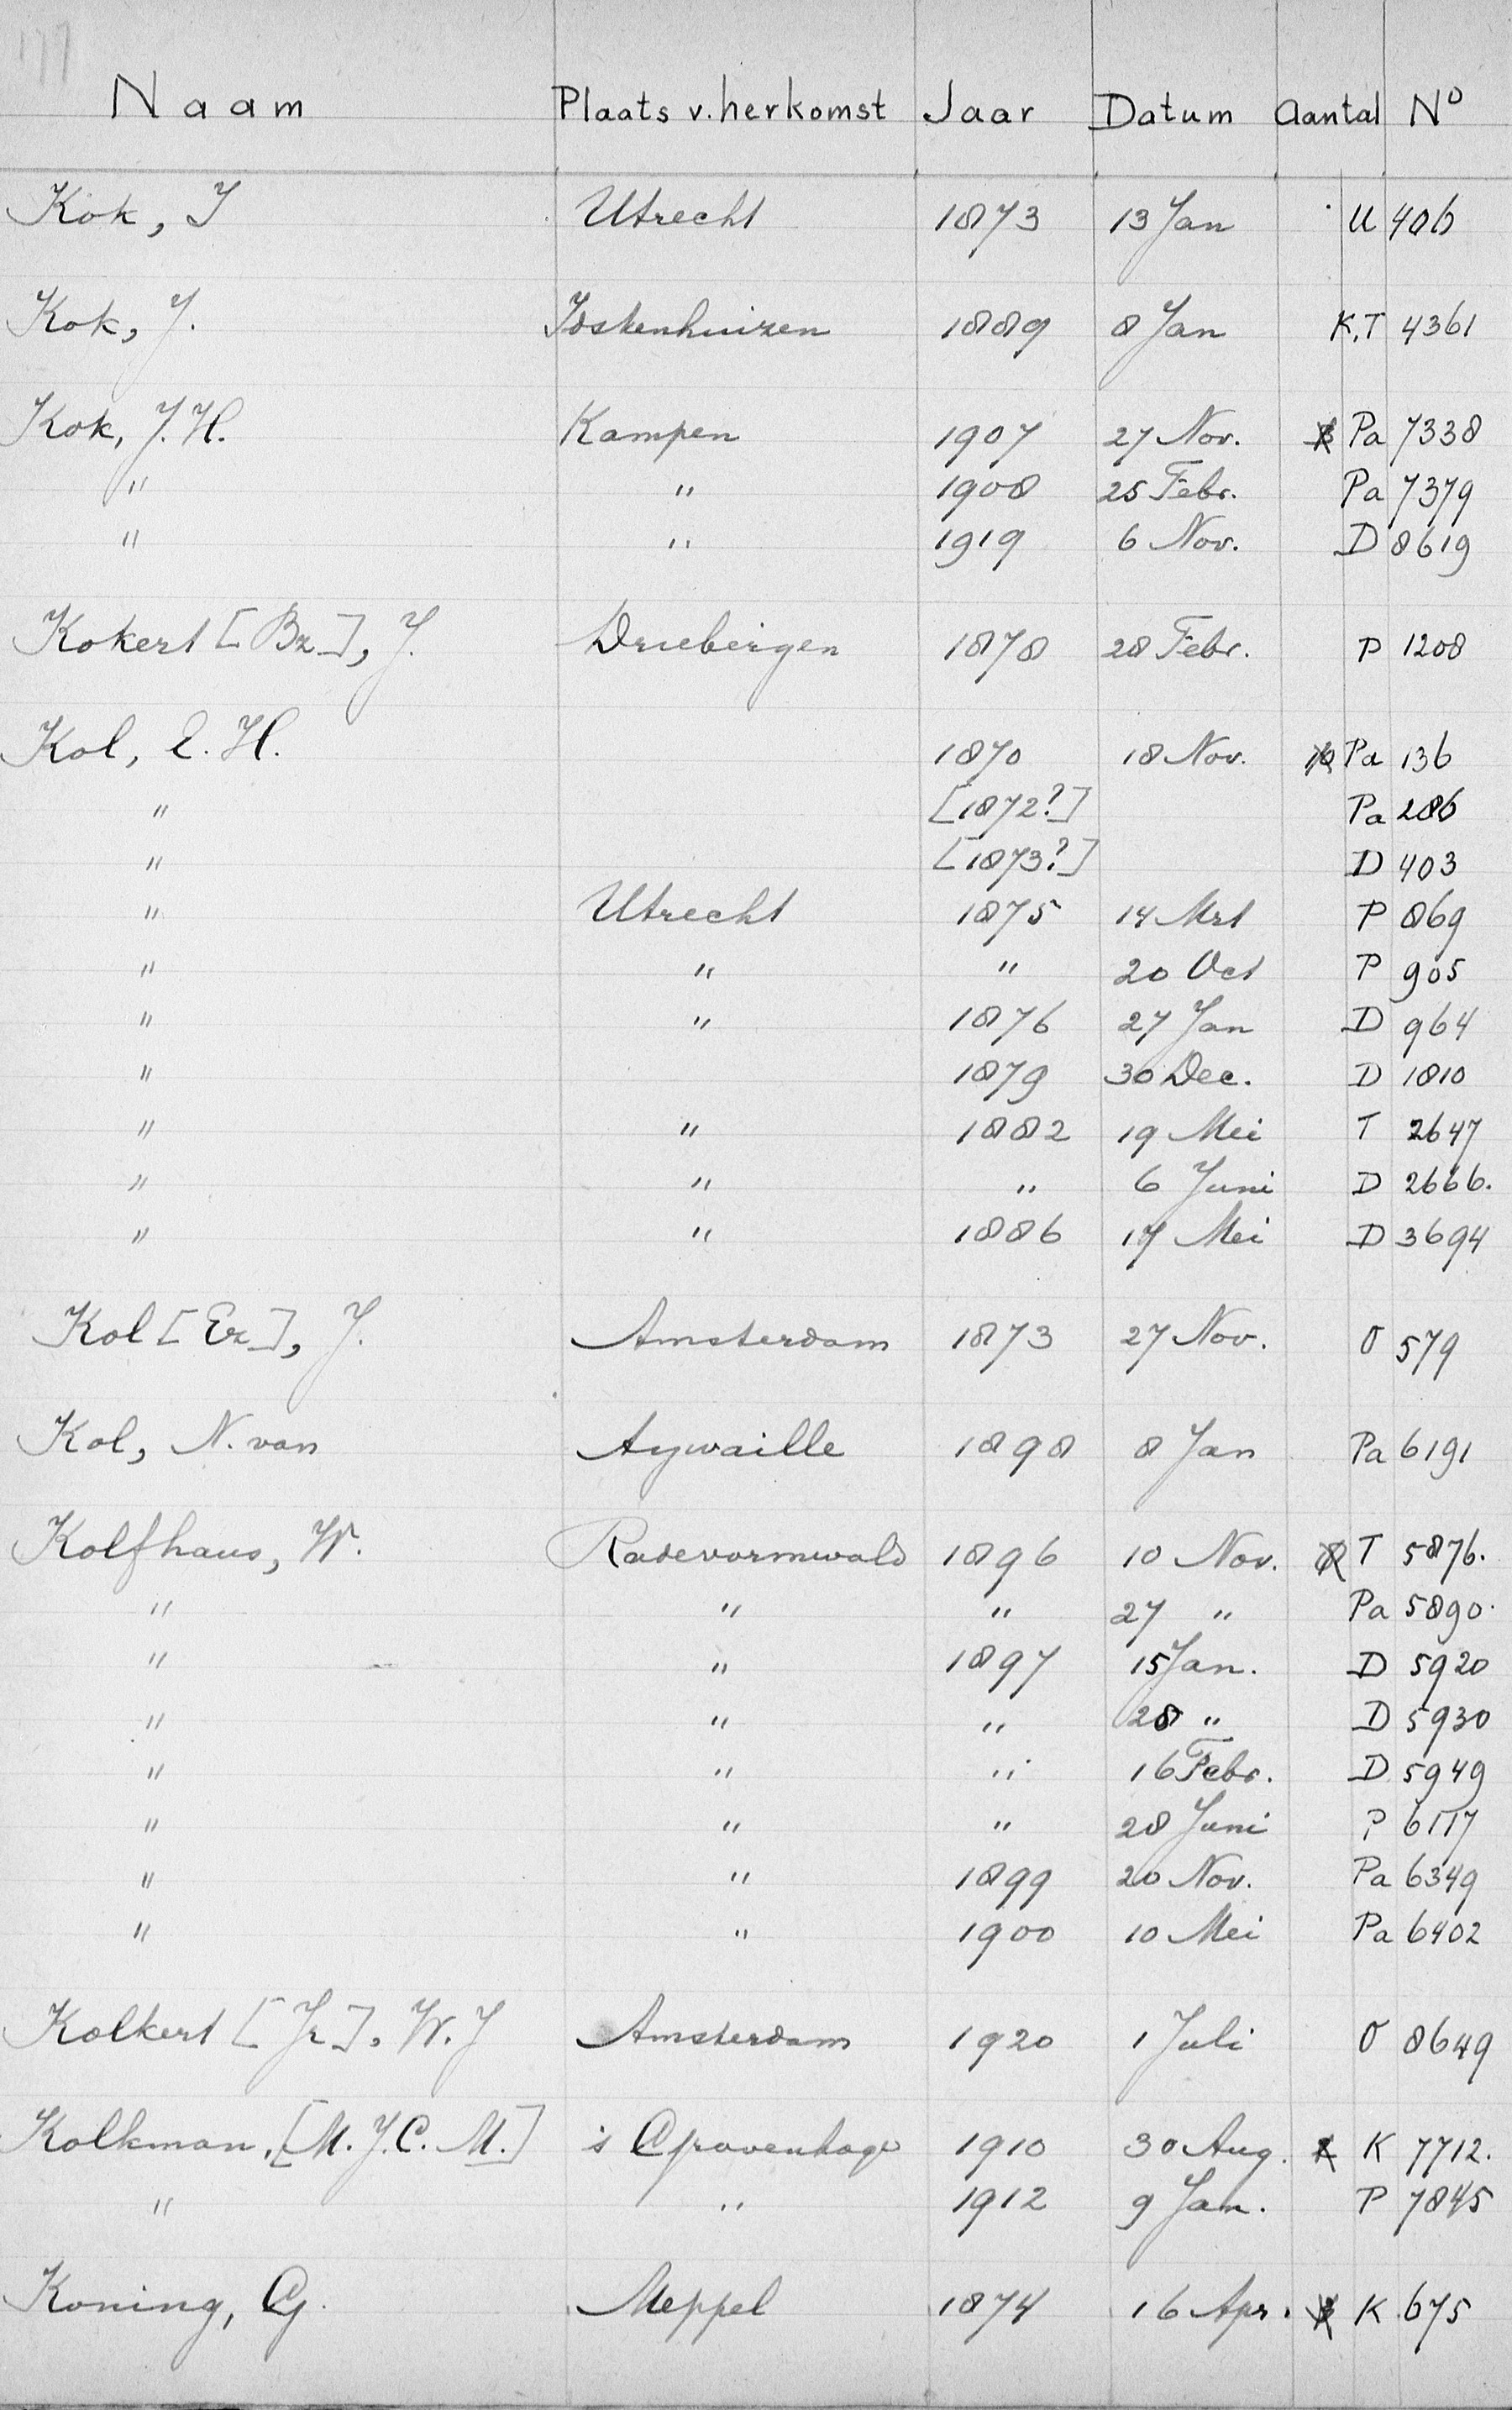 177
Naam Plaats v. herkomst Jaar Datum Aantal Nº
Kok, J Utrecht 1873 13 Jan U 406
Kok, J. Oostenhuizen 1889 8 Jan K,T 4361
Kok, J. H. Kampen 1907 27 Nov. 3 Pa 7338
" " 1908 25 Febr. Pa 7379
" " 1919 6 Nov. D 8619
Kokert [Bz], J. Driebergen 1878 28 Febr. P 1208
Kol, E. H. 1870 18 Nov. 10 Pa 136
" [1872?] Pa 286
" [1873?] D 403
" Utrecht 1875 14 Mrt P 869
" " " 20 Oct P 905
" " 1876 27 Jan D 964
" 1879 30 Dec. D 1810
" " 1882 19 Mei T 2647
" " " 6 Juni D 2666.
" " 1886 17 Mei D 3694
Kol [Ez], J. Amsterdam 1873 27 Nov. O 579
Kol, N. van Aywaille 1898 8 Jan Pa 6191
Kolfhaus, W. Radevormwald 1896 10 Nov. 8 T 5876.
" " " 27 " Pa 5890.
" " 1897 15 Jan. D 5920
" " " 28 " D 5930
" " " 16 Febr. D 5949
" " " 28 Juni P 6117
" " 1899 20 Nov. Pa 6349
" " 1900 10 Mei Pa 6402
Kolkert [Jr], W. J Amsterdam 1920 1 Juli O 8649
Kolkman, [M. J. C. M.] 's Gravenhage 1910 30 Aug. 2 K 7712.
" " 1912 9 Jan. P 7845
Koning, G. Meppel 1874 16 Apr. 3 K 675